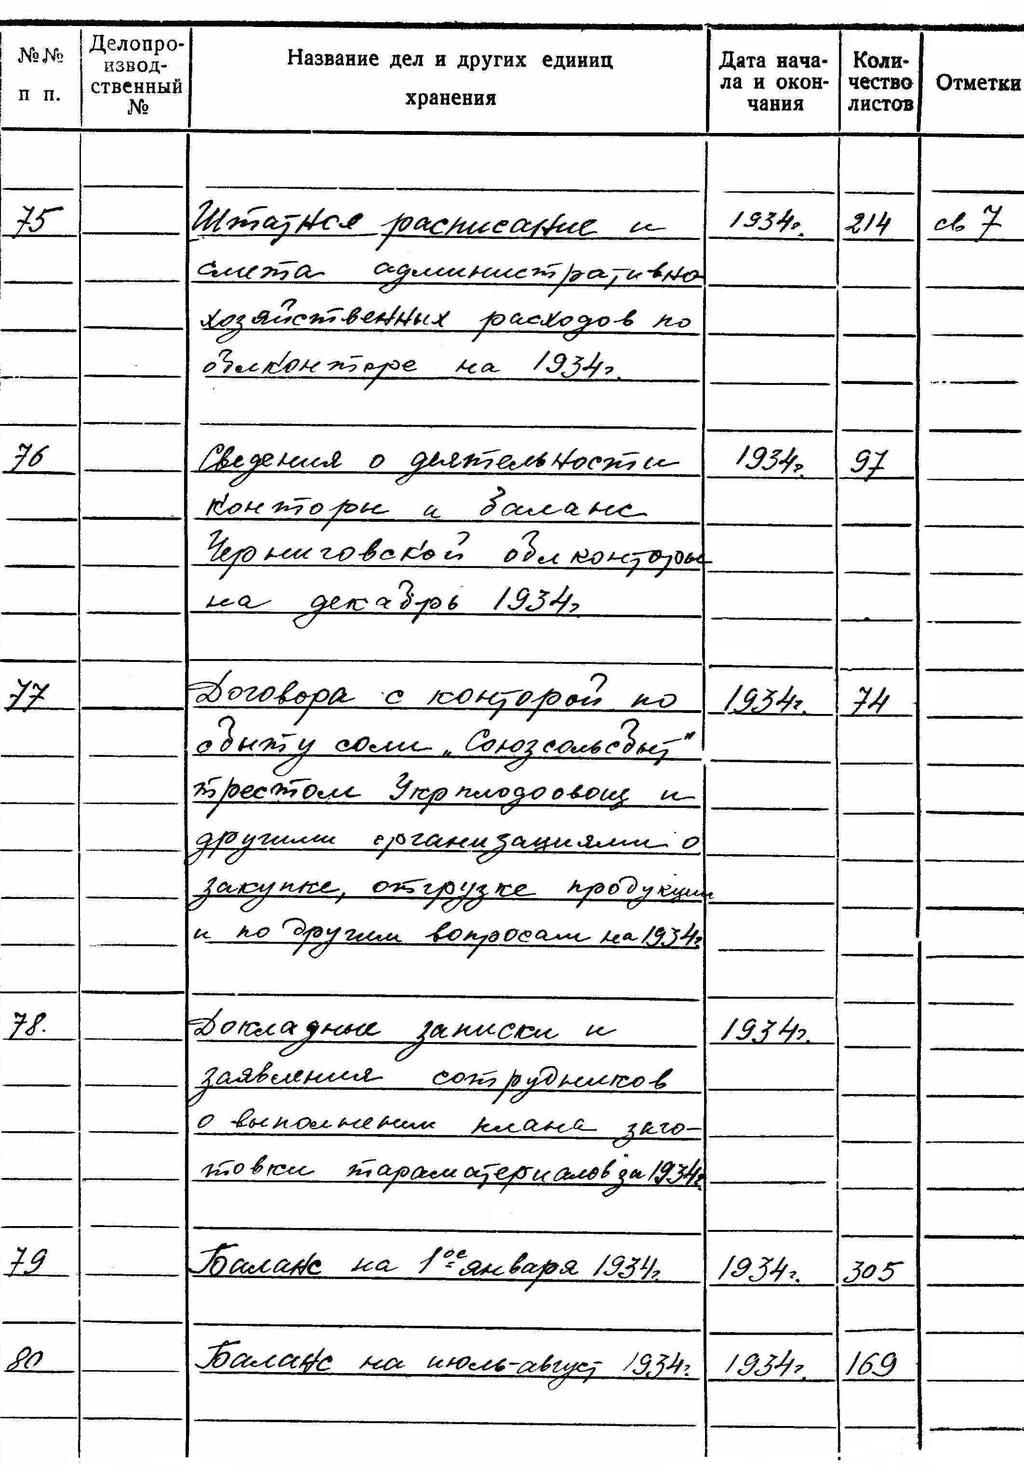 №№ п п.
Делопро-
извод-
ственный
№
Название дел и других единиц
хранения
Дата нача-
ла и окон-
чания
Коли-
чество
листов
Отметки
75 Штатное расписание и 1934г. 214 св 7
смета административно
хозяйственных расходов по
облконторе на 1934г.
76 Сведения о деятельности 1934г. 97
конторы и баланс
Черниговской облконторы
на декабрь 1934г
77 Договора с конторой по 1934г. 74
сбыту соли „Союзсольсбыт"
трестом Укрплодоовощ и
другими организациями о
закупке, отгрузке продукции
и по другим вопросам на 1934г.
78. Докладные записки и 1934г.
заявления сотрудников
о выполнении плана заго-
товки тараматериалов за 1934г.
79 Баланс на 1ое января 1934г. 1934г. 305
80 Баланс на июль-август 1934г. 1934г. 169